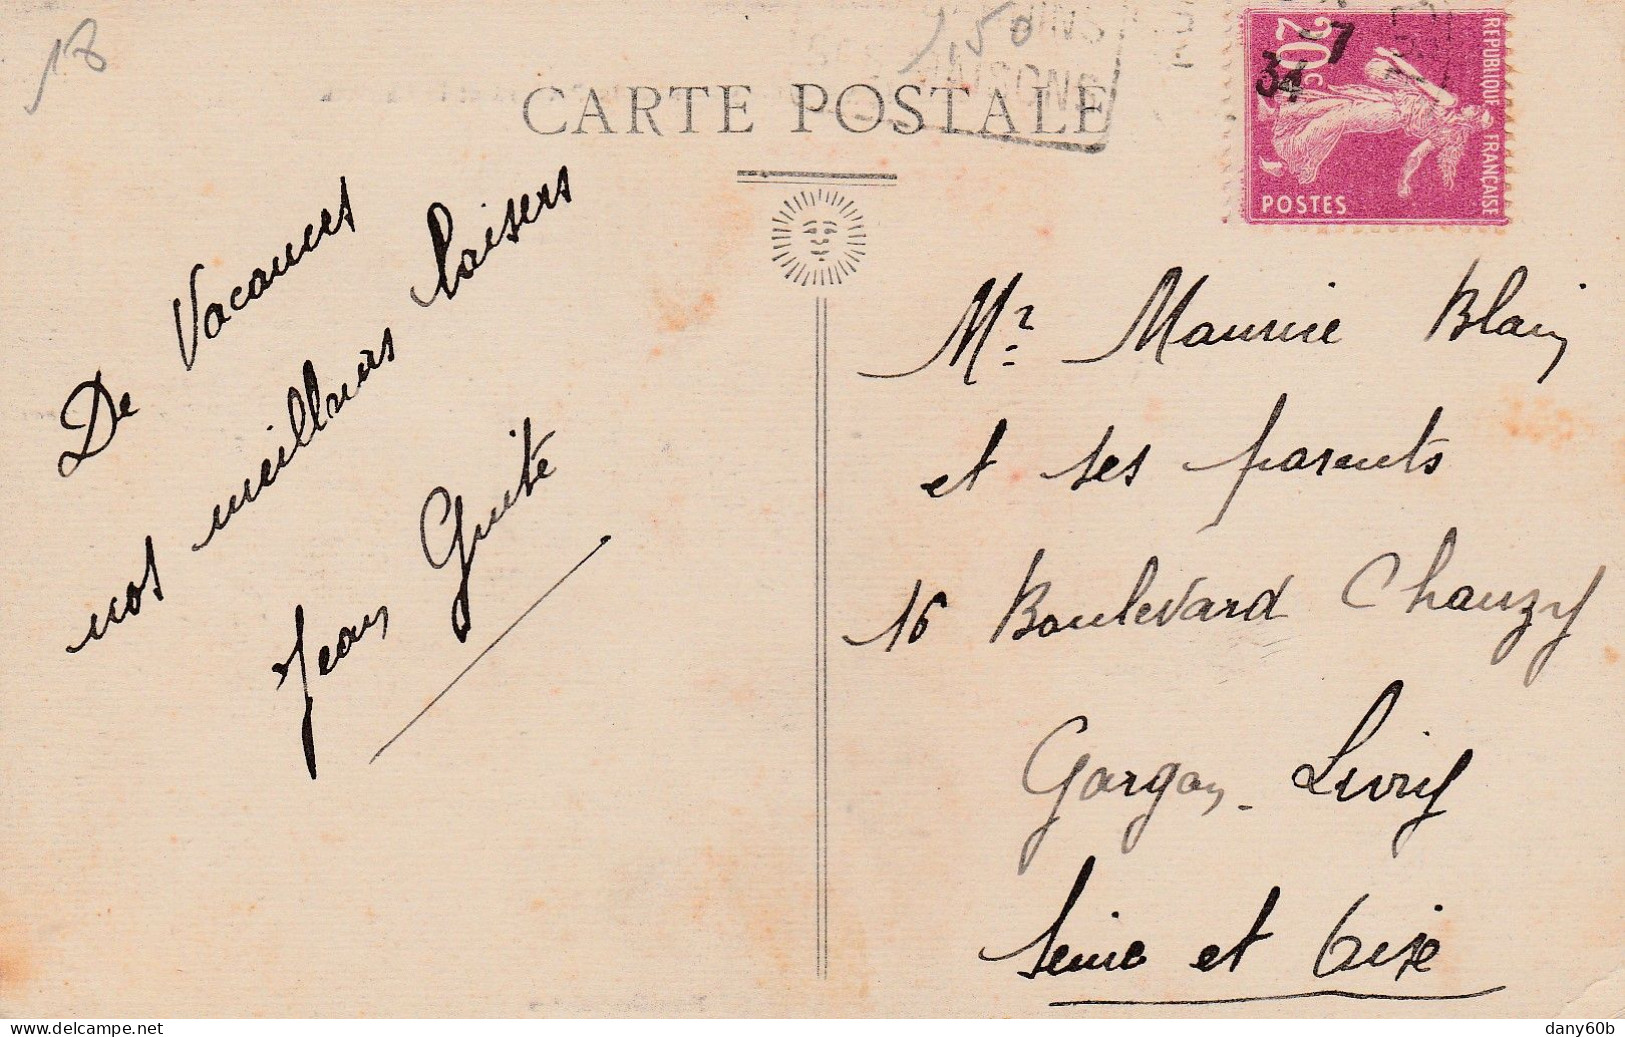 18
1,50
CARTE POSTALE
REPUBLIQUE FRANÇAISE
20c
POSTES
-7
34
De Vacances
nos meilleurs baisers
Jean Guite
Mr Maurice Blain
et ses parents
16 Boulevard Chauzy
Gargan-Livry
Seine et Oise
dany60b
www.delcampe.net